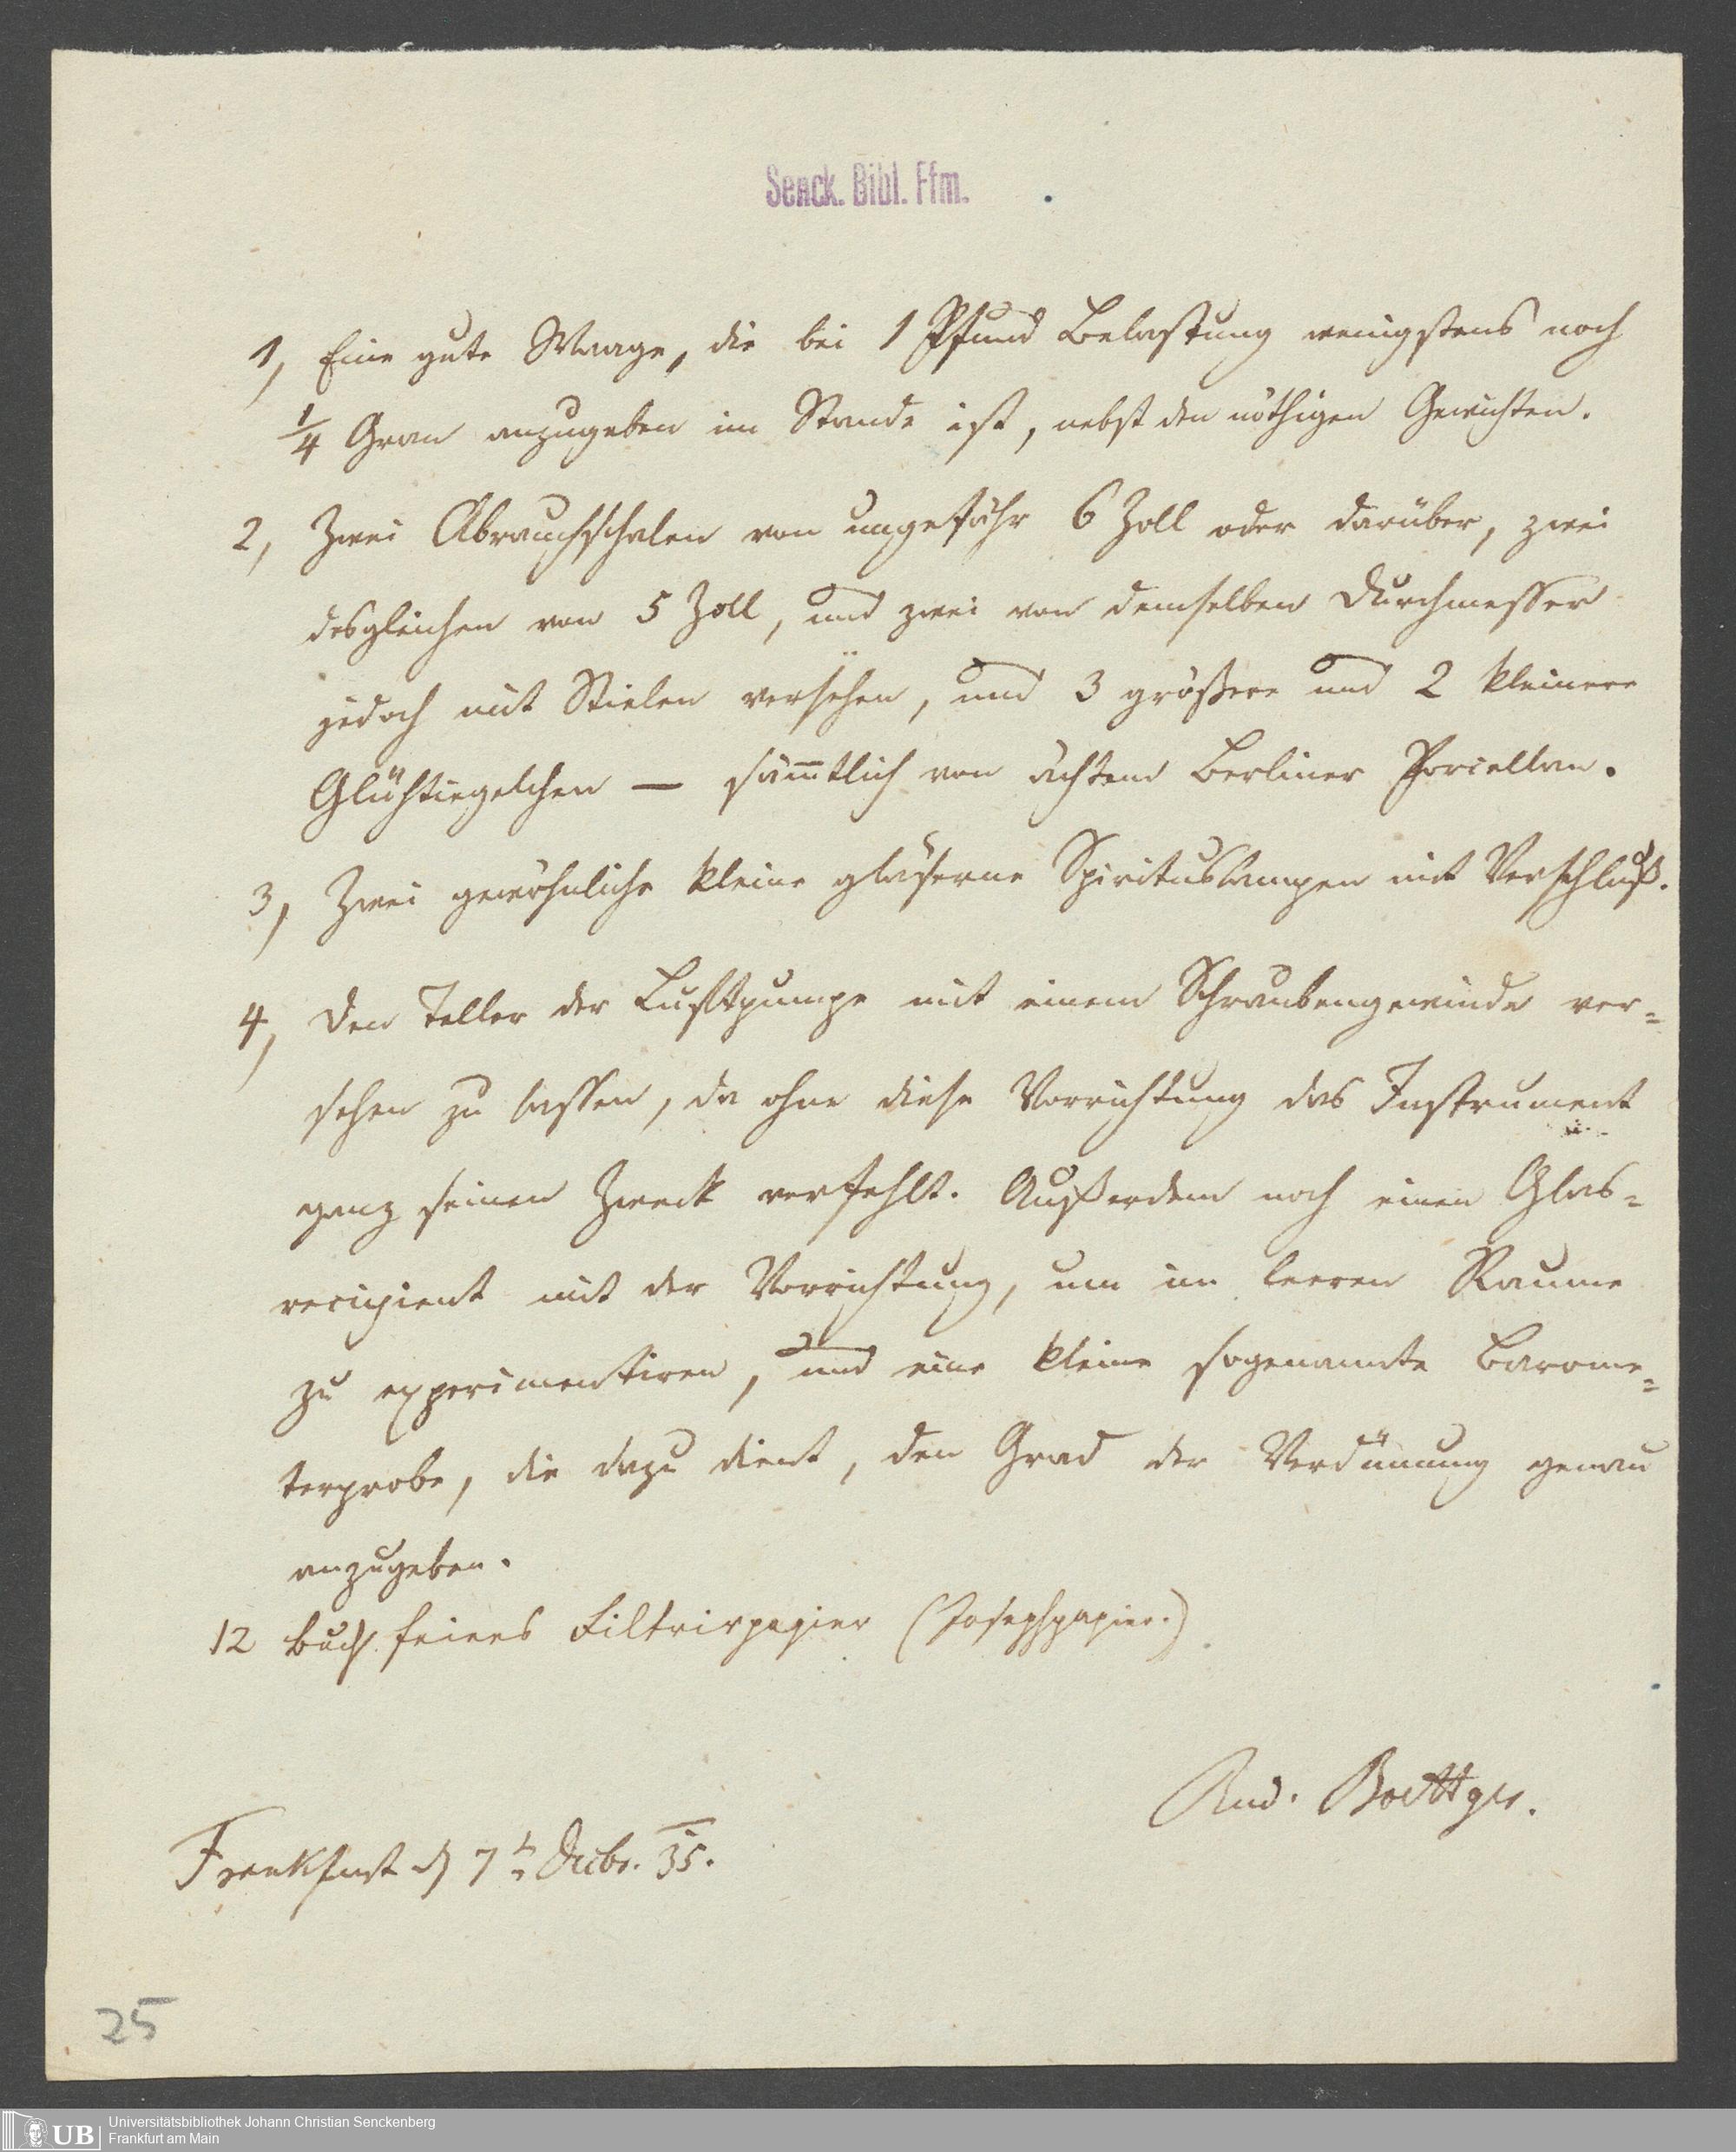 Senck. Bibl. Ffm.
1, Eine gute Waage, die bei 1 Pfund Belastung wenigstens noch
1/4 Gran anzugeben im Stande ist, nebst den nöthigen Gewichten.
2, Zwei Abrauchschalen von ungefähr 6 Zoll oder darüber, zwei
desgleichen von 5 Zoll, und zwei von demselben Durchmesser
jedoch mit Stielen versehen, und 3 größere und 2 kleinere
Glühtiegelchen — säm̅tlich von ächtem Berliner Porcellan.
3, Zwei gewöhnliche kleine gläserne Spirituslampen mit Verschluß.
4, Den Teller der Luftpumpe mit einem Schraubengewinde ver=
sehen zu lassen, da ohne diese Vorrichtung das Instrument
ganz seinen Zweck verfehlt. Außerdem noch einen Glas=
recipient mit der Vorrichtung, um im leeren Raume
zu experimentiren, und eine kleine sogenannte Barome=
terprobe, die dazu dient, den Grad der Verdünnung genau
anzugeben.
12 Buch feines Filtrirpapier (Josephpapier.)
Rud. Boettger.
Frankfurt d 7tn Decbr. 35.
25
UB Universitätsbibliothek Johann Christian Senckenberg
Frankfurt am Main